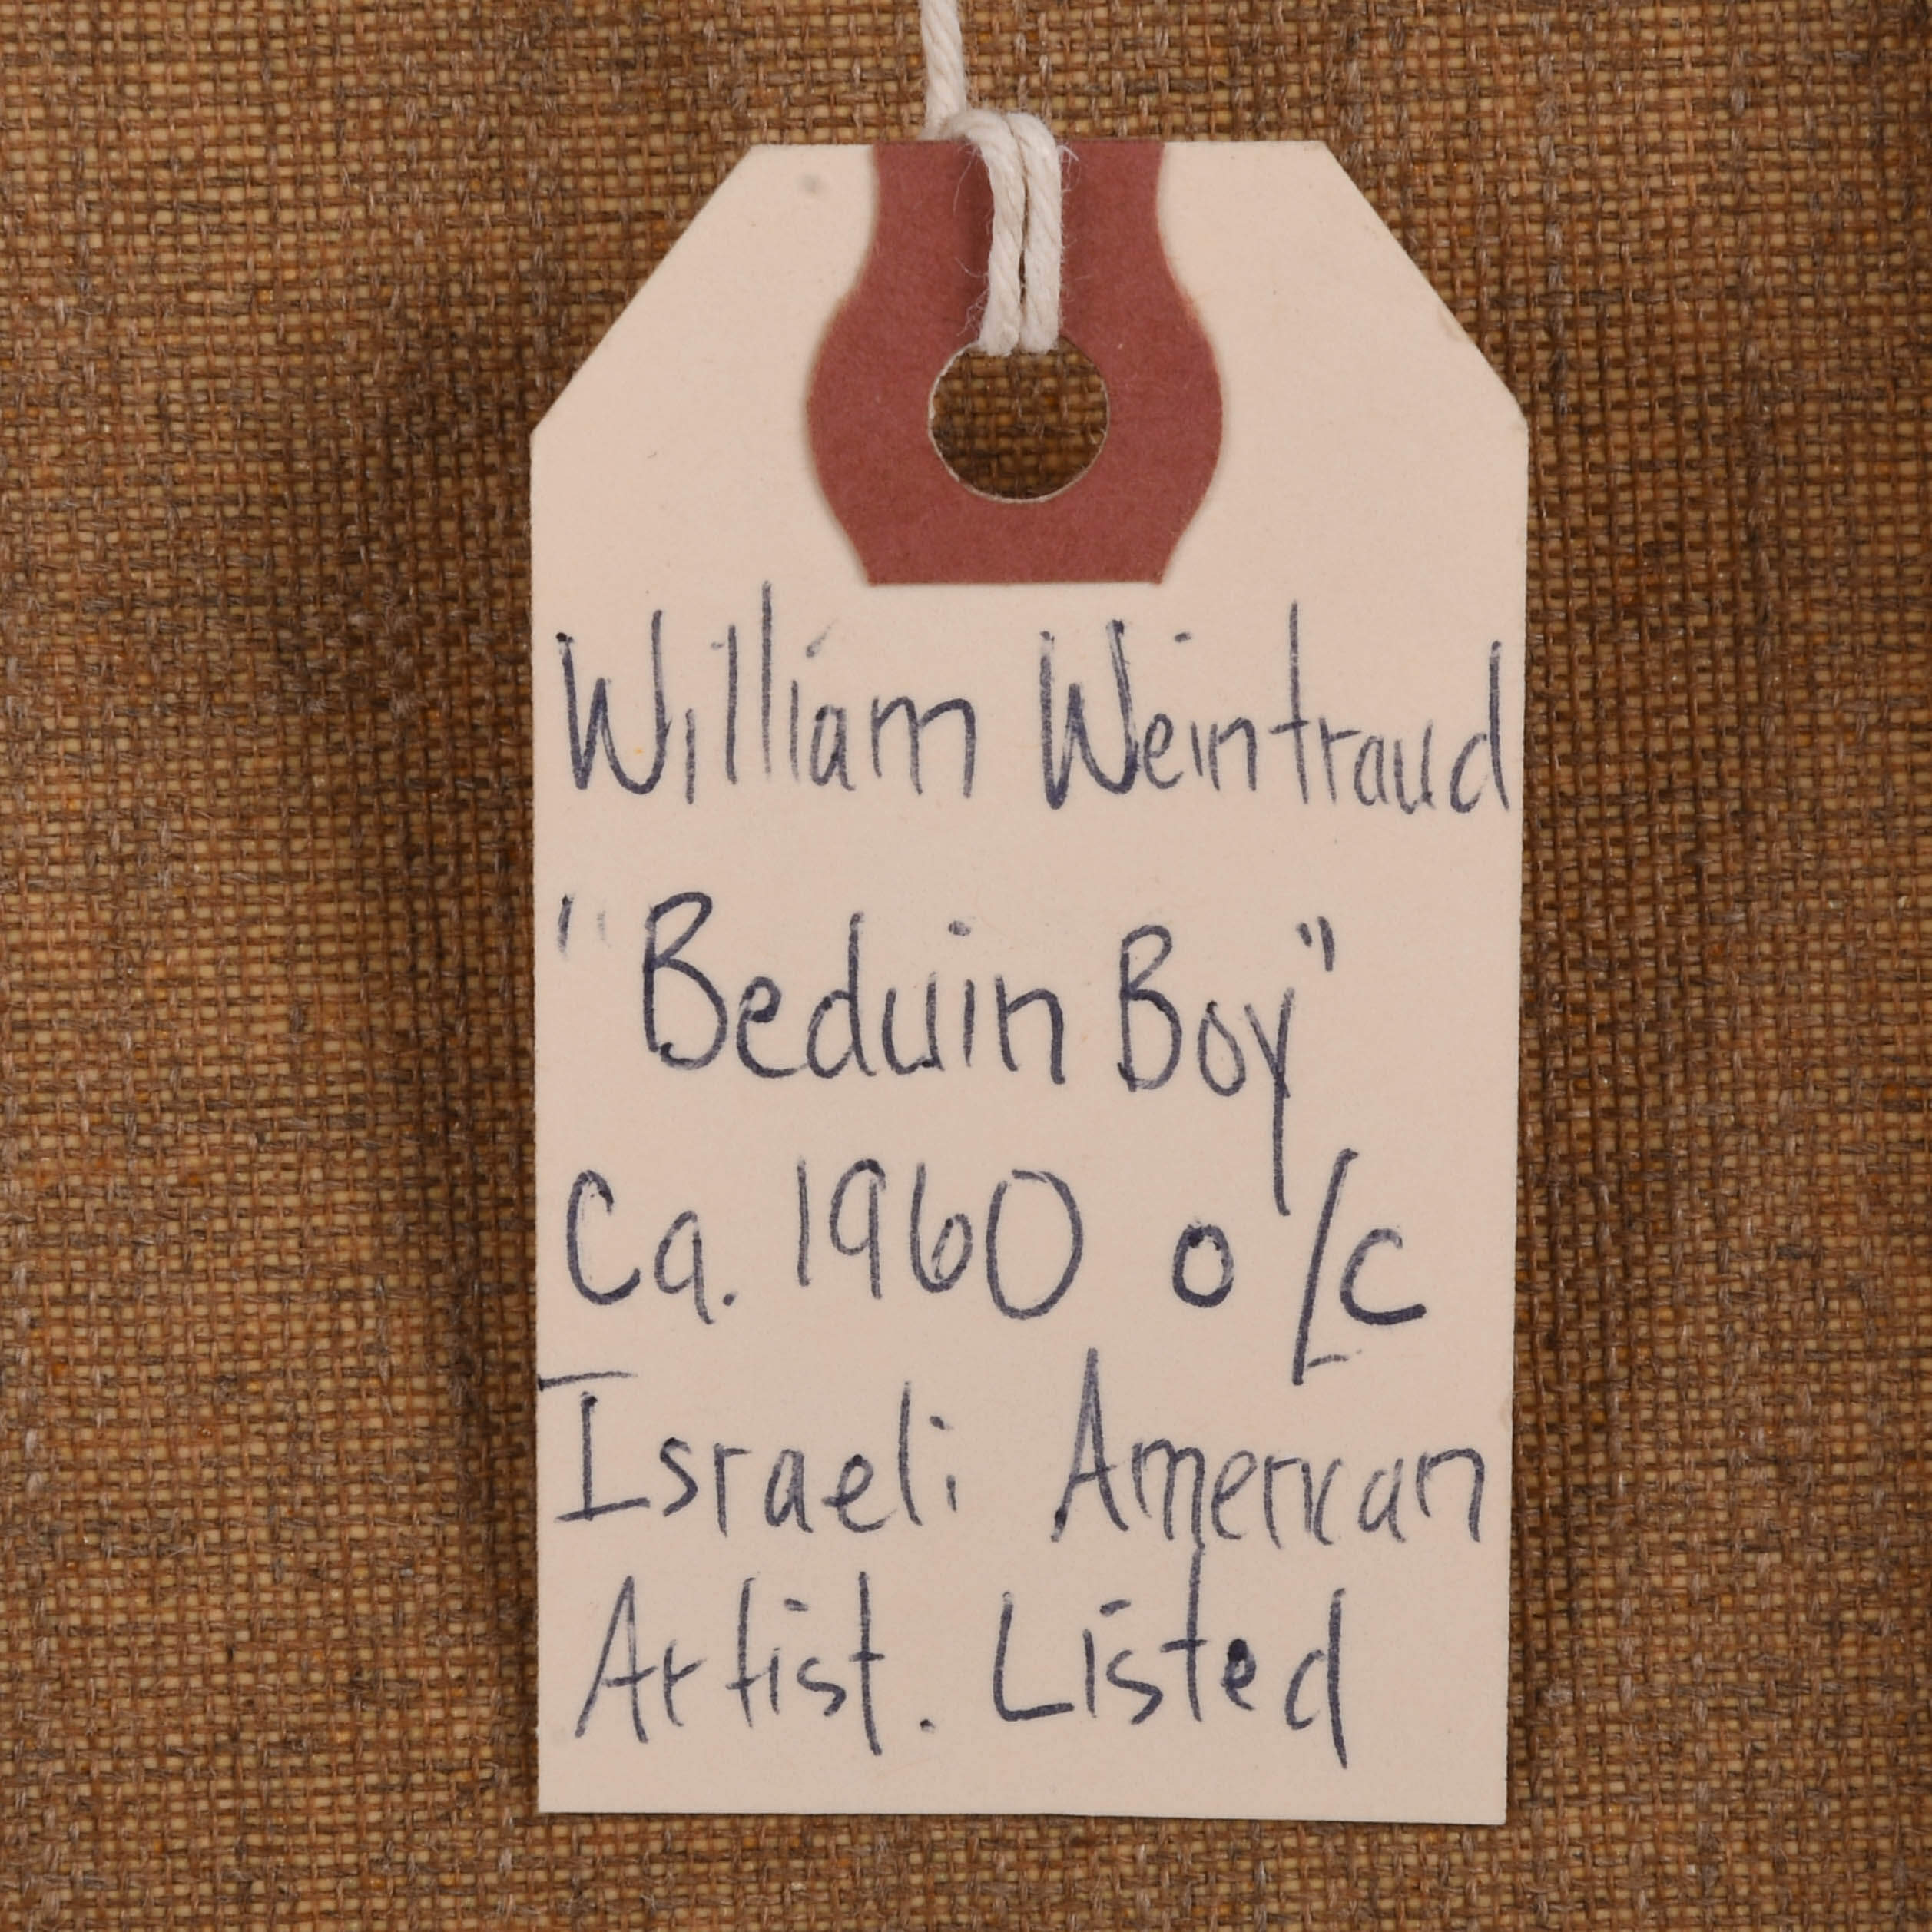 William Weintraud
"Beduin Boy"
Ca. 1960 o/c
Israeli American
Artist. Listed